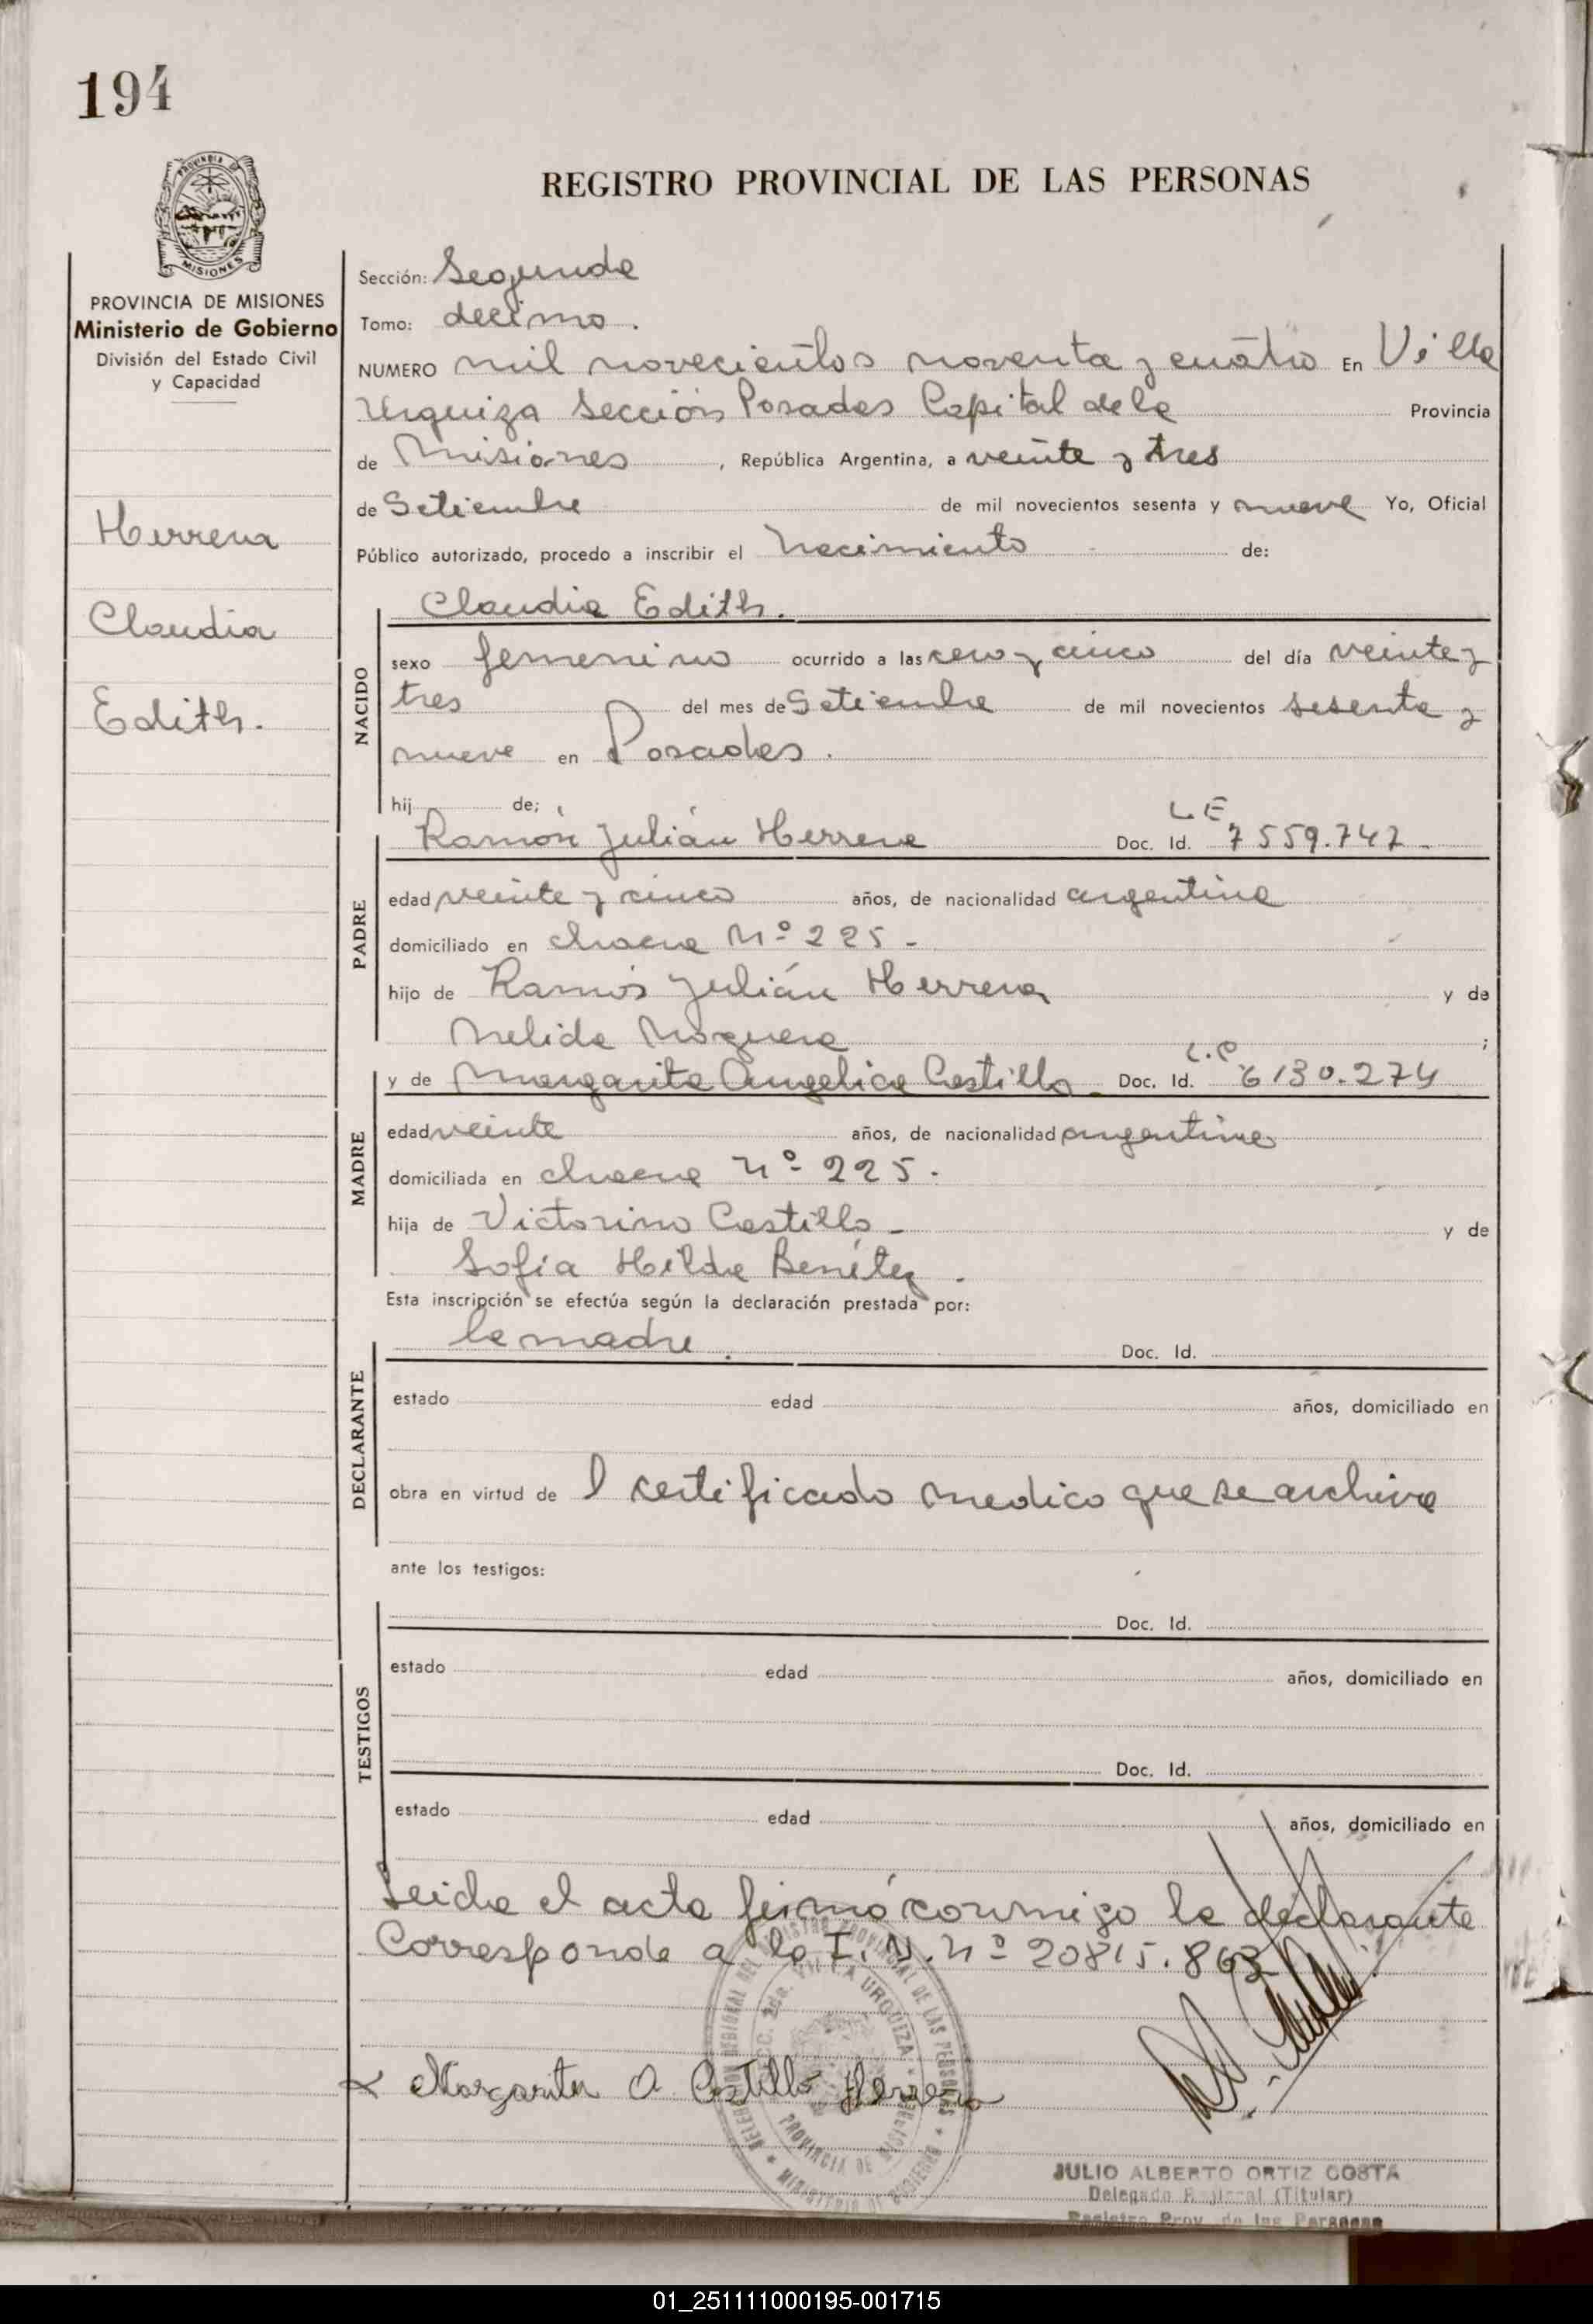 194
PROVINCIA DE MISIONES
REGISTRO PROVINCIAL DE LAS PERSONAS
PROVINCIA DE MISIONES
Ministerio de Gobierno
División del Estado Civil
y Capacidad
Herrera
Claudia
Edith.
Sección: Segunda
Tomo: decimo.
NUMERO mil novecientos noventa y cuatro En Villa
Urquiza Sección Posadas Capital de la Provincia
de Misiones, República Argentina, a veinte y tres
de Setiembre de mil novecientos sesenta y nueve Yo, Oficial
Público autorizado, procedo a inscribir el nacimiento de:
Claudia Edith.
NACIDO
sexo femenino ocurrido a las cero y cinco del día veinte y
tres del mes de Setiembre de mil novecientos sesenta y
nueve en Posadas.
hij de;
L E
Ramón Julián Herrera Doc. Id. 7559.747-
PADRE
edad veinte y cinco años, de nacionalidad argentina
domiciliado en chacra Nº 225-
hijo de Ramón Julián Herrera y de
Nelida Noguera ;
L.C
y de Margarita Angelica Castillo- Doc. Id. 6130.274
MADRE
edad veinte años, de nacionalidad argentina
domiciliada en chacra nº 225.
hija de Victorino Castillo- y de
Sofía Hilda Benítez.
Esta inscripción se efectúa según la declaración prestada por:
la madre. Doc. Id.
DECLARANTE
estado edad años, domiciliado en
obra en virtud de l certificado medico que se archiva
ante los testigos:
Doc. Id.
TESTIGOS
estado edad años, domiciliado en
Doc. Id.
estado edad años, domiciliado en
Leida el acta firmó conmigo la declarante
Corresponde a la I. N. nº 20815.863
DELEGACION REGIONAL DEL REGISTRO PROVINCIAL DE LAS PERSONAS
SECC. 2da. VILLA URQUIZA
PROVINCIA DE MISIONES
MINISTERIO DE GOBIERNO
x Margarita A Castillo Herrera
JULIO ALBERTO ORTIZ COSTA
Delegado Regional (Titular)
Registro Prov. de las Personas
01_251111000195-001715